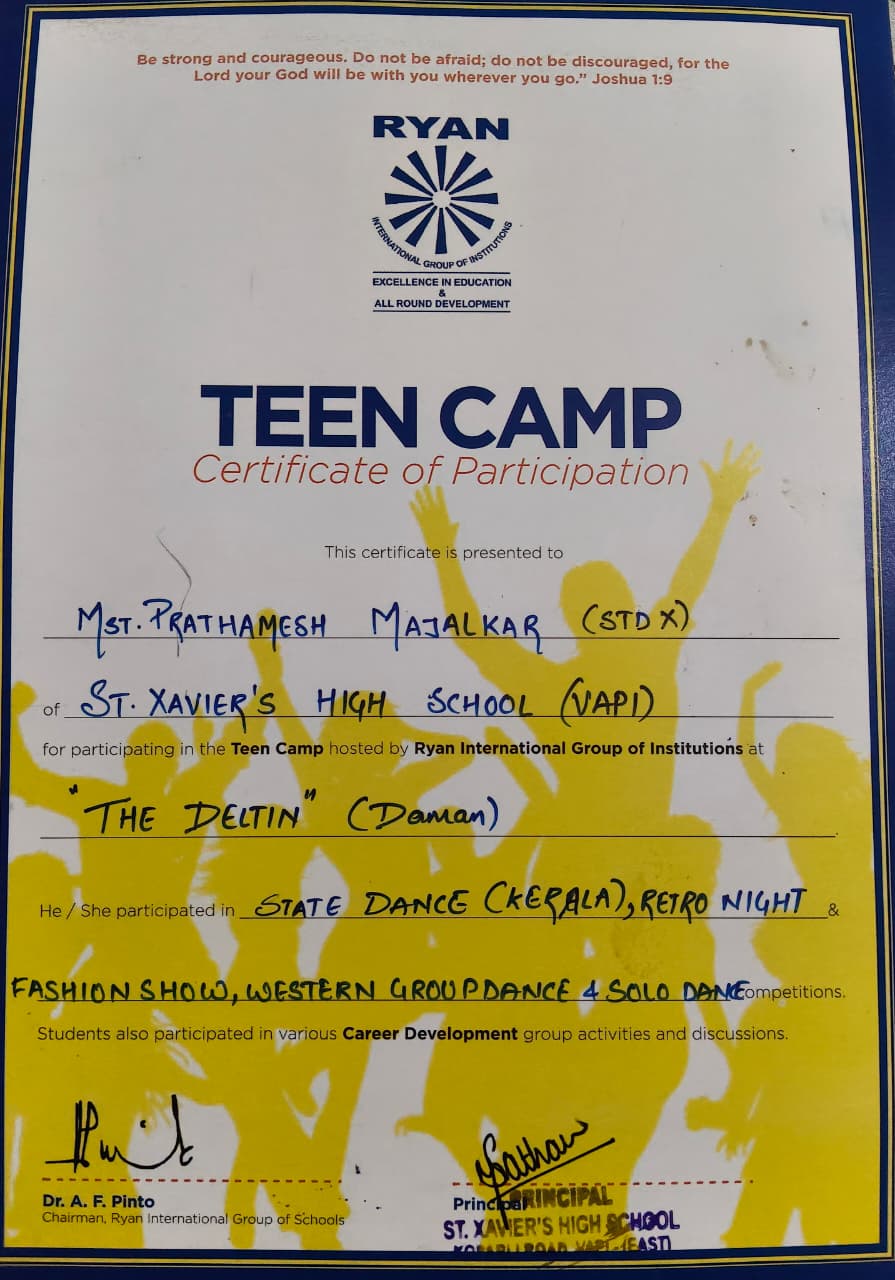 Be strong and courageous. Do not be afraid; do not be discouraged, for the
Lord your God will be with you wherever you go.” Joshua 1:9
RYAN
INTERNATIONAL GROUP OF INSTITUTIONS
EXCELLENCE IN EDUCATION
&
ALL ROUND DEVELOPMENT
TEEN CAMP
Certificate of Participation
This certificate is presented to
MST. PRATHAMESH MAJALKAR (STD X)
of ST. XAVIER'S HIGH SCHOOL (VAPI)
for participating in the Teen Camp hosted by Ryan International Group of Institutions at
"THE DELTIN" (Daman)
He / She participated in STATE DANCE (KERALA), RETRO NIGHT &
FASHION SHOW, WESTERN GROUP DANCE & SOLO DANCE competitions.
Students also participated in various Career Development group activities and discussions.
Dr. A. F. Pinto
Chairman, Ryan International Group of Schools
Principal
PRINCIPAL
ST. XAVIER'S HIGH SCHOOL
ROAD, VAPI-(EAST)